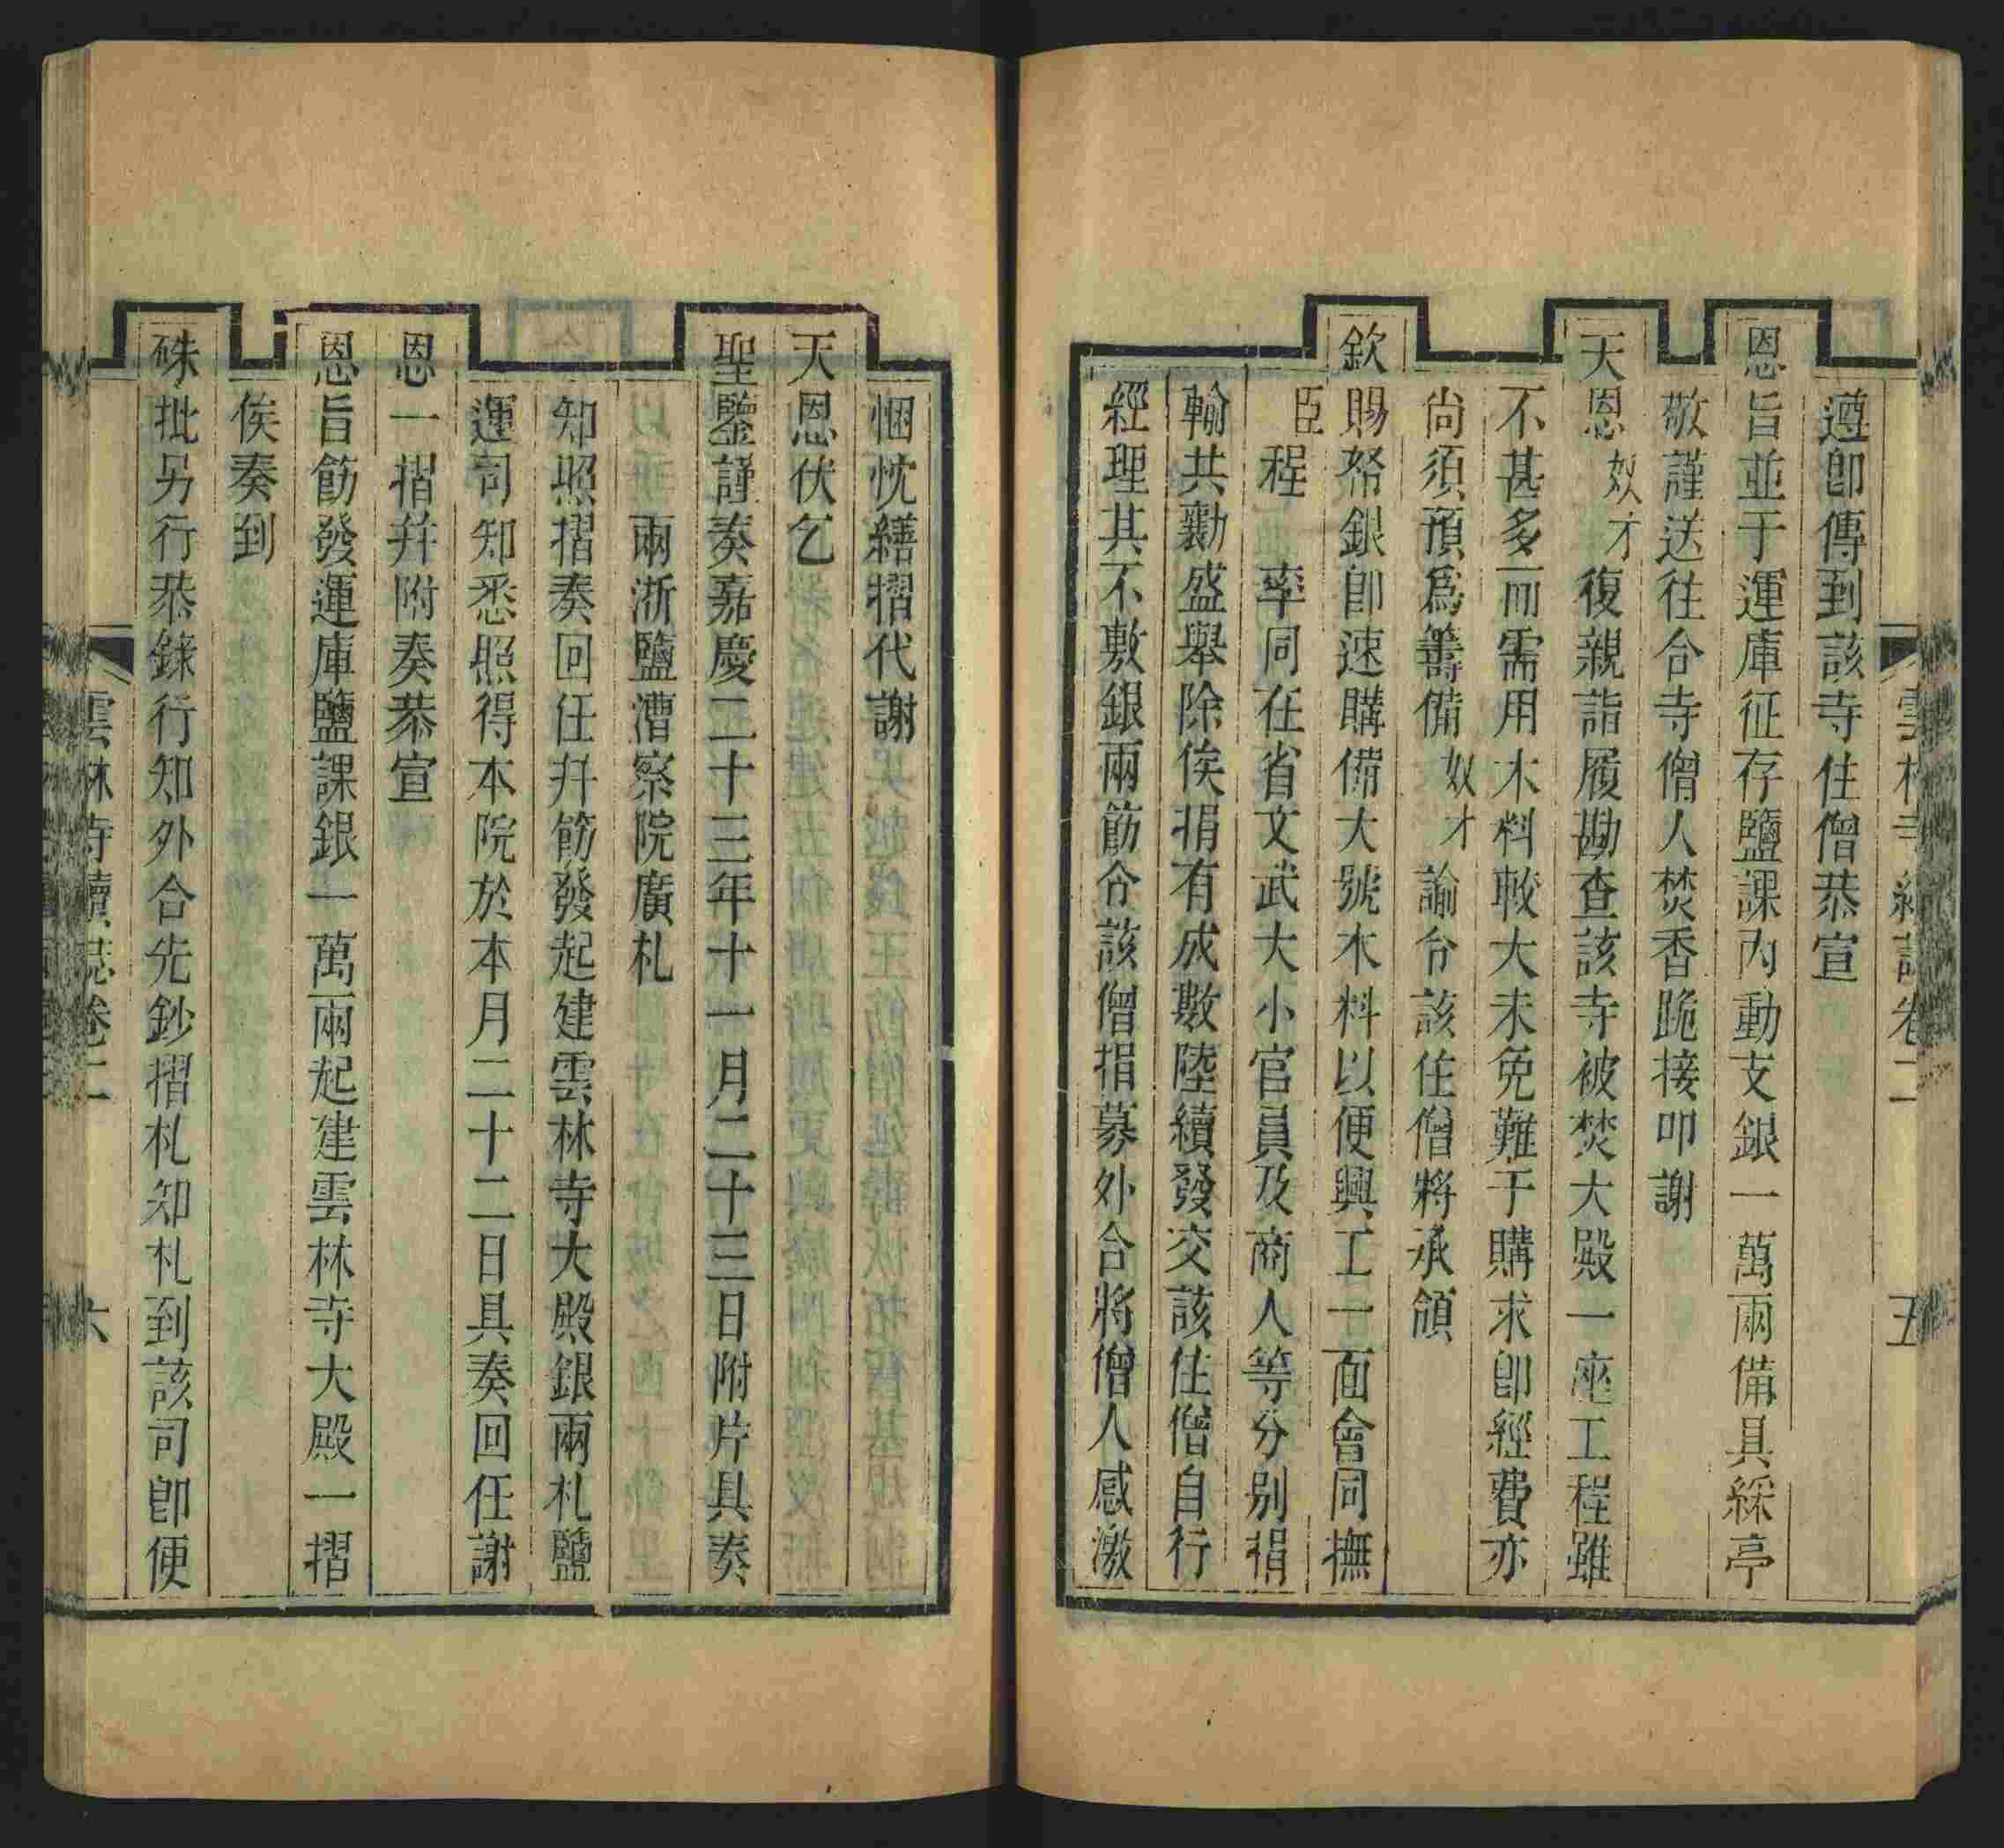 雲林寺續誌卷二 五
遵卽傳到該寺住僧恭宣
恩旨並于運庫征存鹽課內動支銀一萬兩備具綵亭
敬謹送往合寺僧人焚香跪接叩謝
天恩奴才復親詣履勘查該寺被焚大殿一座工程雖
不甚多而需用木料較大未免難于購求卽經費亦
尚須預爲籌備奴才諭令該住僧將承領
欽賜帑銀卽速購備大號木料以便興工一面會同撫
臣程 率同在省文武大小官員及商人等分别捐
輸共勷盛舉除俟捐有成數陸續發交該住僧自行
經理其不敷銀兩飭令該僧捐募外合將僧人感激
悃忱繕摺代謝
天恩伏乞
聖鑒謹奏嘉慶二十三年十一月二十三日附片具奏
兩浙鹽漕察院廣札
知照摺奏回任幷飭發起建雲林寺大殿銀兩札鹽
運司知悉照得本院於本月二十二日具奏回任謝
恩一摺幷附奏恭宣
恩旨飭發運庫鹽課銀一萬兩起建雲林寺大殿一摺
俟奏到
硃批另行恭錄行知外合先鈔摺札知札到該司卽便
雲林寺續誌卷二 六